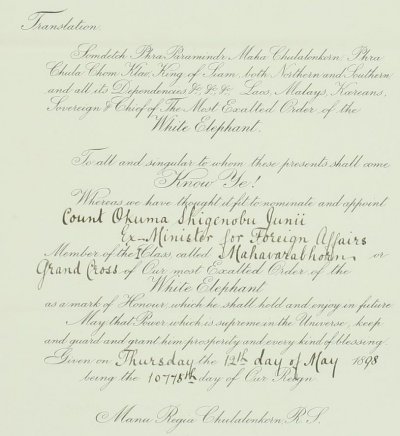 Translation.
Somdetch Phra Paramindr Maha Chulalonkorn Phra
Chula Chom Klao, King of Siam, both Northern and Southern
and all its Dependencies &c &c &c Laos Malays, Koreans,
Sovereign & Chief of The Most Exalted Order of the
White Elephant.
To all and singular to whom these presents shall come
Know Ye!
Whereas we have thought it fit to nominate and appoint
Count Okuma Shigenobu Junii
Ex-Minister for Foreign Affairs
Member of the I Class, called Mahavarabhorn or
Grand Cross of Our most Exalted Order of the
White Elephant
as a mark of Honour, which he shall hold and enjoy in future
May that Power which is supreme in the Universe, keep
and guard and grant him prosperity and every kind of blessing.
Given on Thursday the 12th day of May 1898
being the 10775th day of Our Reign
Manu Regia Chulalonkorn R. S.